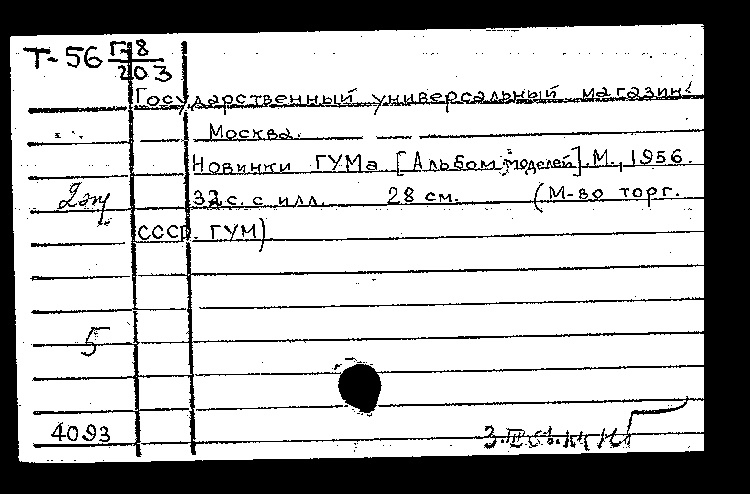 Т-56 Г-8
203
Государственный универсальный магазин.
Москва.
Новинки ГУМа [Альбом моделей]. М., 1956.
32 с. с илл. 28 см. (М-во торг.
2 эк
СССР. ГУМ)
5
4093